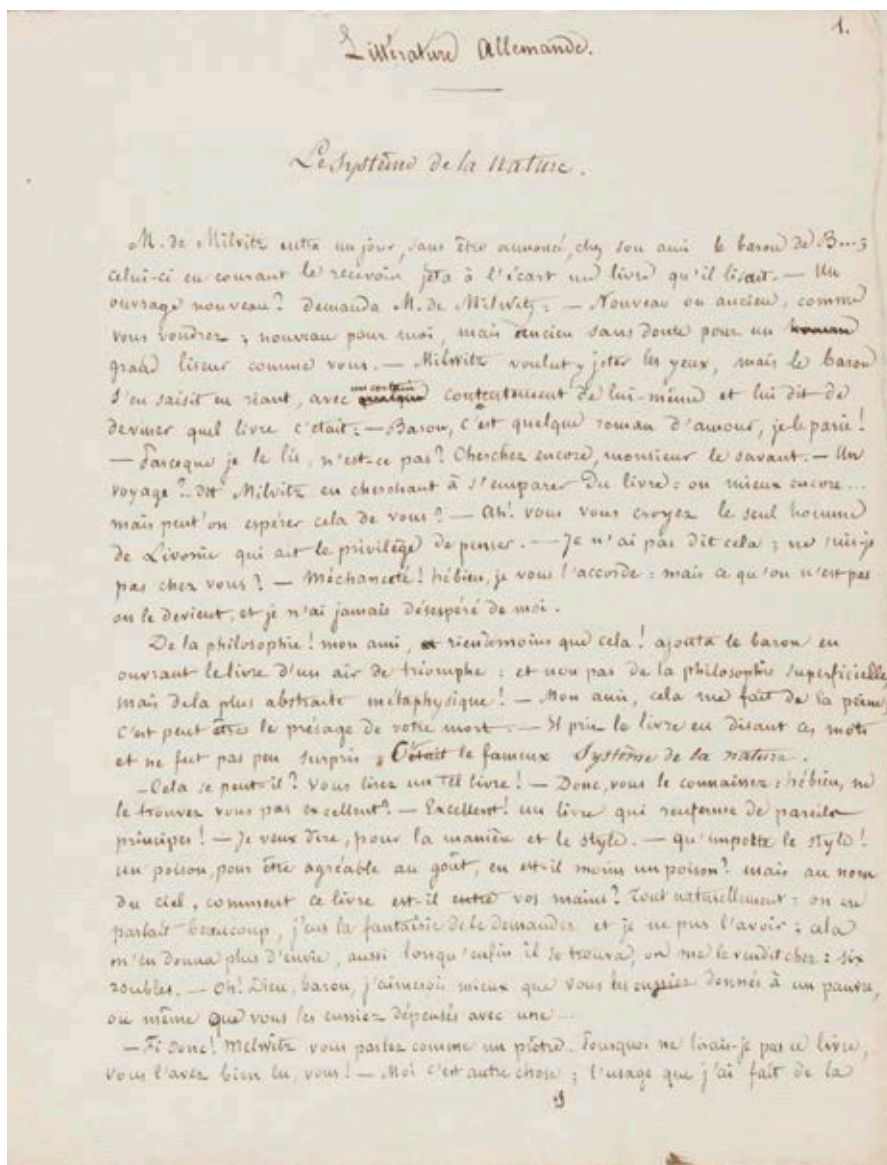 1.
Littérature Allemande.
Le système de la nature.
M. de Milvitz entra un jour, sans être annoncé, chez son ami le baron de B...;
celui-ci en courant le recevoir jeta à l'écart un livre qu'il lisait. — Un
ouvrage nouveau? demanda M. de Milwitz: — Nouveau ou ancien, comme
vous voudrez; nouveau pour moi, mais ancien sans doute pour un
grand liseur comme vous. — Milvitz voulut y jeter les yeux, mais le baron
s'en saisit en riant, avec un certain quelque contentement de lui-même et lui dit de
deviner quel livre c'était: — Baron, c'est quelque roman d'amour, je le parie!
— Parceque je le lis, n'est-ce pas? Cherchez encore, monsieur le savant. — Un
voyage? dit Milvitz en cherchant à s'emparer du livre: ou mieux encore...
mais peut'on espérer cela de vous? — Ah! vous vous croyez le seul homme
de Livonie qui ait le privilège de penser. — Je n'ai pas dit cela; ne suis-je
pas chez vous? — Méchanceté! hébien, je vous l'accorde: mais ce qu'on n'est pas
on le devient, et je n'ai jamais désespéré de moi.
De la philosophie! mon ami, rien de moins que cela! ajouta le baron en
ouvrant le livre d'un air de triomphe: et non pas de la philosophie superficielle
mais de la plus abstraite métaphysique! — Mon ami, cela me fait de la peine,
c'est peut être le présage de votre mort. — Il prit le livre en disant ces mots
et ne fut pas peu surpris, C'était le fameux Système de la nature.
— Cela se peut-il? Vous lisez un tel livre! — Donc, vous le connaissez: hébien, ne
le trouvez vous pas excellent? — Excellent! un livre qui renferme de pareils
principes! — Je veux dire, pour la manière et le style. — qu'importe le style!
un poison, pour être agréable au goût, en est-il moins un poison? mais au nom
du ciel, comment ce livre est-il entre vos mains? Tout naturellement: on en
parlait beaucoup, j'eus la fantaisie de le demander et je ne pus l'avoir; cela
m'en donna plus d'envie, aussi lorsqu'enfin il se trouva, on me le vendit cher: six
roubles. — Oh! Dieu, baron, j'aimerois mieux que vous les eussiez donnés à un pauvre,
ou même que vous les eussiez dépensés avec une...
— Fi donc! Melwitz vous parlez comme un prêtre. Pourquoi ne lirais-je pas ce livre,
vous l'avez bien lu, vous! — Moi c'est autre chose; l'usage que j'ai fait de la